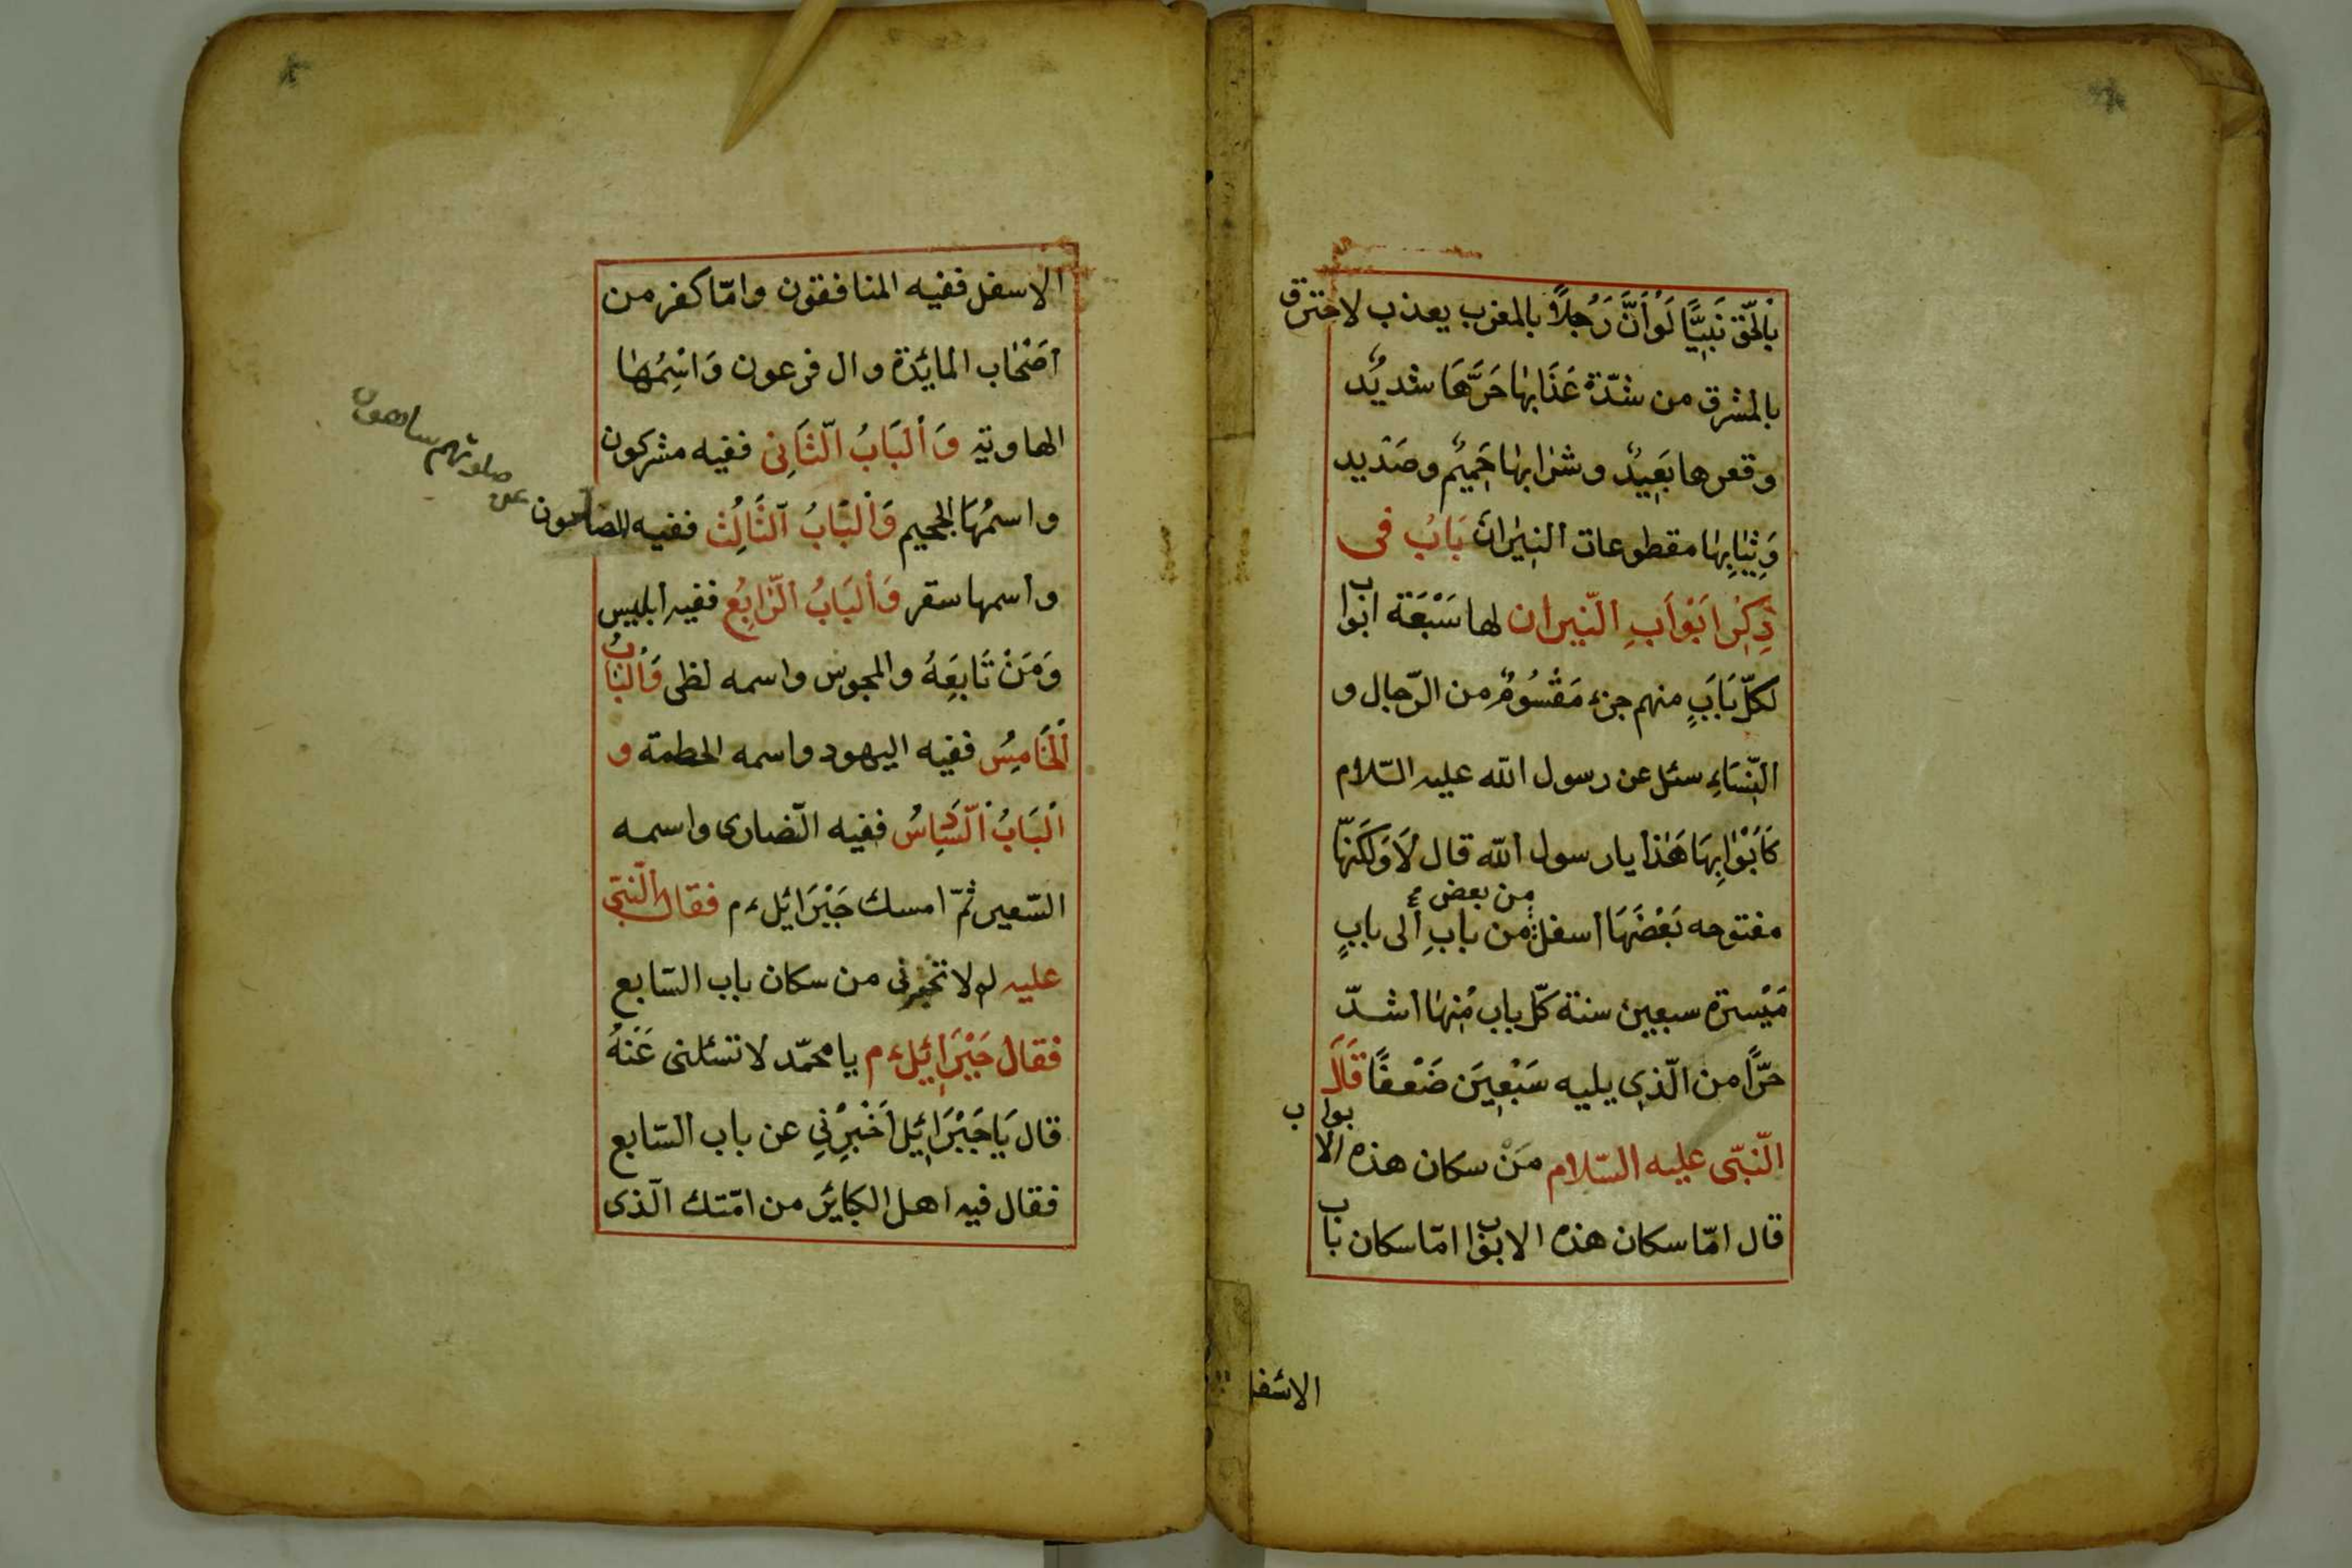 بِالْحَقِّ نَبِيًّا لَوْ أَنَّ رَجُلاً بالمغرب يعذب لاحترق
بالمشرق من شدّة عَذَابِهَا حَرَّهَا شديدٌ
وقعرها بَعِيدٌ وشرابها حَمِيمٌ وصَدِيد
وَثِيَابِهَا مقطوعات النِيرَان بَابُ فى
ذِكْرِ اَبْوَابِ النّيران لها سَبْعَة ابواب
لكلّ بَابٍ منهم جزء مَقْسُومٌ من الرّجال و
النِّسَاءِ سئل عن رسول الله عليه السّلام
كَاَبْوَابِهَا هَذَا يا رسول الله قال لَا وَلَكِنَّهَا
مفتوحه بَعْضَهَا اسفل من بعض من بابٍ الى بابٍ
مَيْسَرة سبعين سنة كلّ باب مِنْهَا اشدّ
حَرًّا من الّذى يليه سَبْعِينَ ضَعْفًا قَالَ
النّبّى عليه السّلام مَنْ سكان هذه الابواب
قال امّا سكان هذه الابواب امّا سكان باب
الاسفل
الاسفل ففيه المنافقون وامّا كفر من
اَصْحَاب المائَدَة وال فرعون وَاسْمُهَا
الهاوية وَالْبَابُ الثَّانِى ففيه مشركون
واسمُهَا الجحيم وَالْبَابُ الثَّالِثُ ففيه الصابون عن صلوتهم ساهون
واسمها سقر وَالْبَابُ الرَّابِعُ ففيه ابليس
وَمَنْ تَابَعَهُ والمجوس واسمه لظى وَالْبَابُ
الْخَامِسُ ففيه اليهود واسمه الحطمة و
الْبَابُ السَّادِسُ ففيه النّصارى واسمه
السّعير ثمّ امسك جَبْرَائِل ءم فقال النّبّى
عليه لم لا تخبرنى من سكان باب السّابع
فقال جَبْرَائِيل ءم يا محمّد لا تسئلنى عَنْهُ
قال يَا جَبْرَائِيل اَخْبِرْنِى عن باب السّابع
فقال فيه اهل الكبائَر من امّتك الّذى